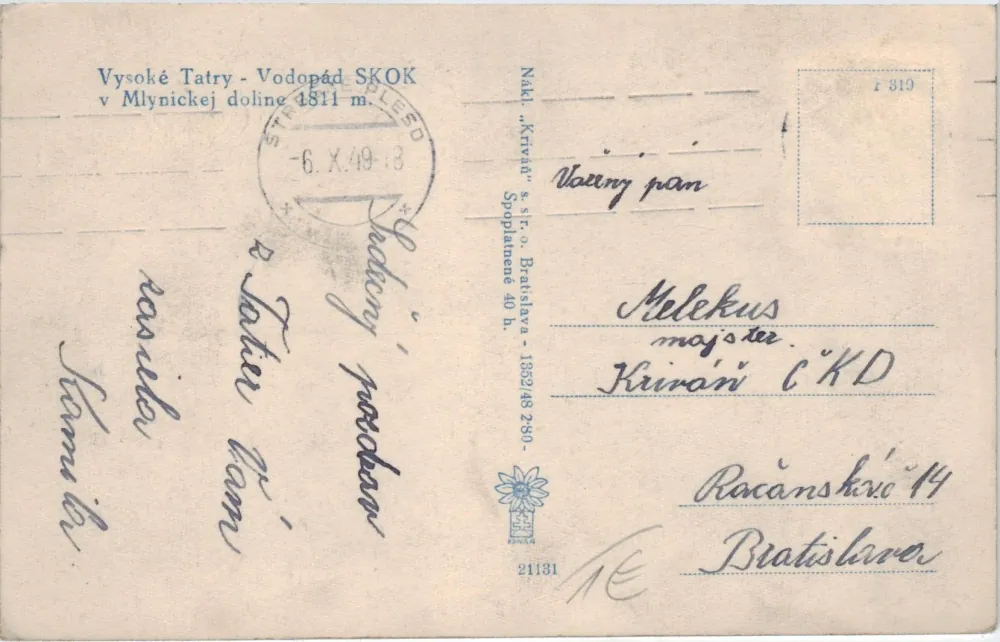 Vysoké Tatry - Vodopád SKOK
v Mlynickej doline 1811 m.
ŠTRBSKÉ PLESO
-6. X. 49-18
Srdečný pozdrav
z Tatier Vám
zasiela
Kamila
Nákl. „Kriváň" s. s r. o. Bratislava - 1352/48 2·80 -
Spoplatnené 40 h.
21131
F 319
Vážený pán
Melekus
majster.
Kriváň ČKD
Račánská č 14
Bratislava
1€